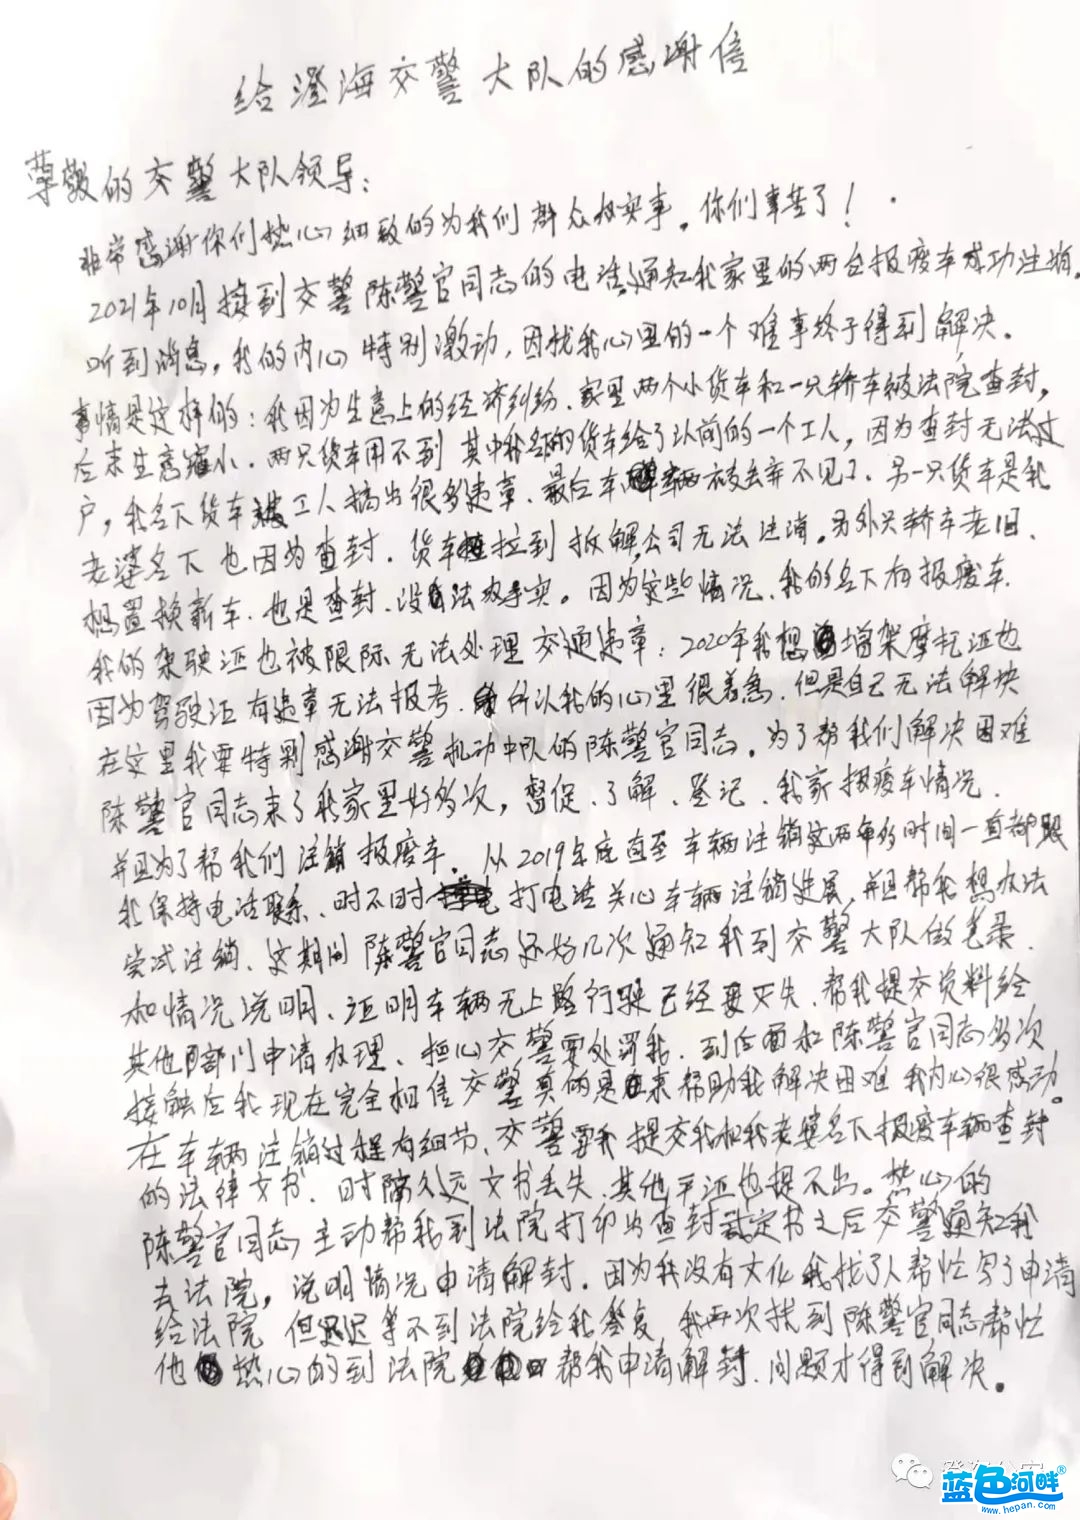 给澄海交警大队的感谢信
尊敬的交警大队领导：
非常感谢你们热心细致的为我们群众办实事。你们辛苦了！
2021年10月接到交警陈警官同志的电话,通知我家里的两台报废车成功注销。
听到消息，我的内心特别激动，困扰我心里的一个难事终于得到解决。
事情是这样的：我因为生意上的经济纠纷、家里两个小货车和一只轿车被法院查封，
后来生意缩小．两只货车用不到 其中我名下的货车给了以前的一个工人，因为查封无法过
户，我名下货车被工人搞出很多违章．最后车辆被丢弃不见了．另一只货车是我
老婆名下 也因为查封．货车拉到拆解公司无法注消。另外只轿车老旧．
想置换新车．也是查封．没法办手实。因为这些情况、我的名下有报废车
我的驾驶证也被限际无法处理交通违章：2020年我想增驾摩托证也
因为驾驶证有违章无法报考．所以我的心里很着急．但是自己无法解块
在这里我要特别感谢交警机动中队的陈警官同志。为了帮我们解决困难
陈警官同志来了我家里好多次，督促、了解、登记、我家报废车情况．
并且为了帮我们注销报废车．从2019年底直至车辆注销这两年的时间一直都跟
我保持电话联系、时不时打电话关心车辆注销进展，并且帮我想办法
尝试注销、这期间陈警官同志还好几次通知我到交警大队做笔录．
和情况说明、证明车辆无上路行驶已经灭失、帮我提交资料给
其他部门申请办理、担心交警要处罚我．到后面和陈警官同志多次
接触后我现在完全相信交警真的是来帮助我解决困难 我内心很感动。
在车辆注销过程有细节、交警要我提交我和我老婆名下报废车辆查封
的法律文书．时隔久远文书丢失．其他平证也提不出。热心的
陈警官同志主动帮我到法院打印出查封裁定书之后交警通知我
去法院，说明情况申请解封．因为我没有文化我找了人帮忙写了申请
给法院 但迟迟等不到法院给我答复 我再次找到陈警官同志帮忙
他热心的到法院帮我申请解封．问题才得到解决。
蓝色河畔®
www.hepan.com